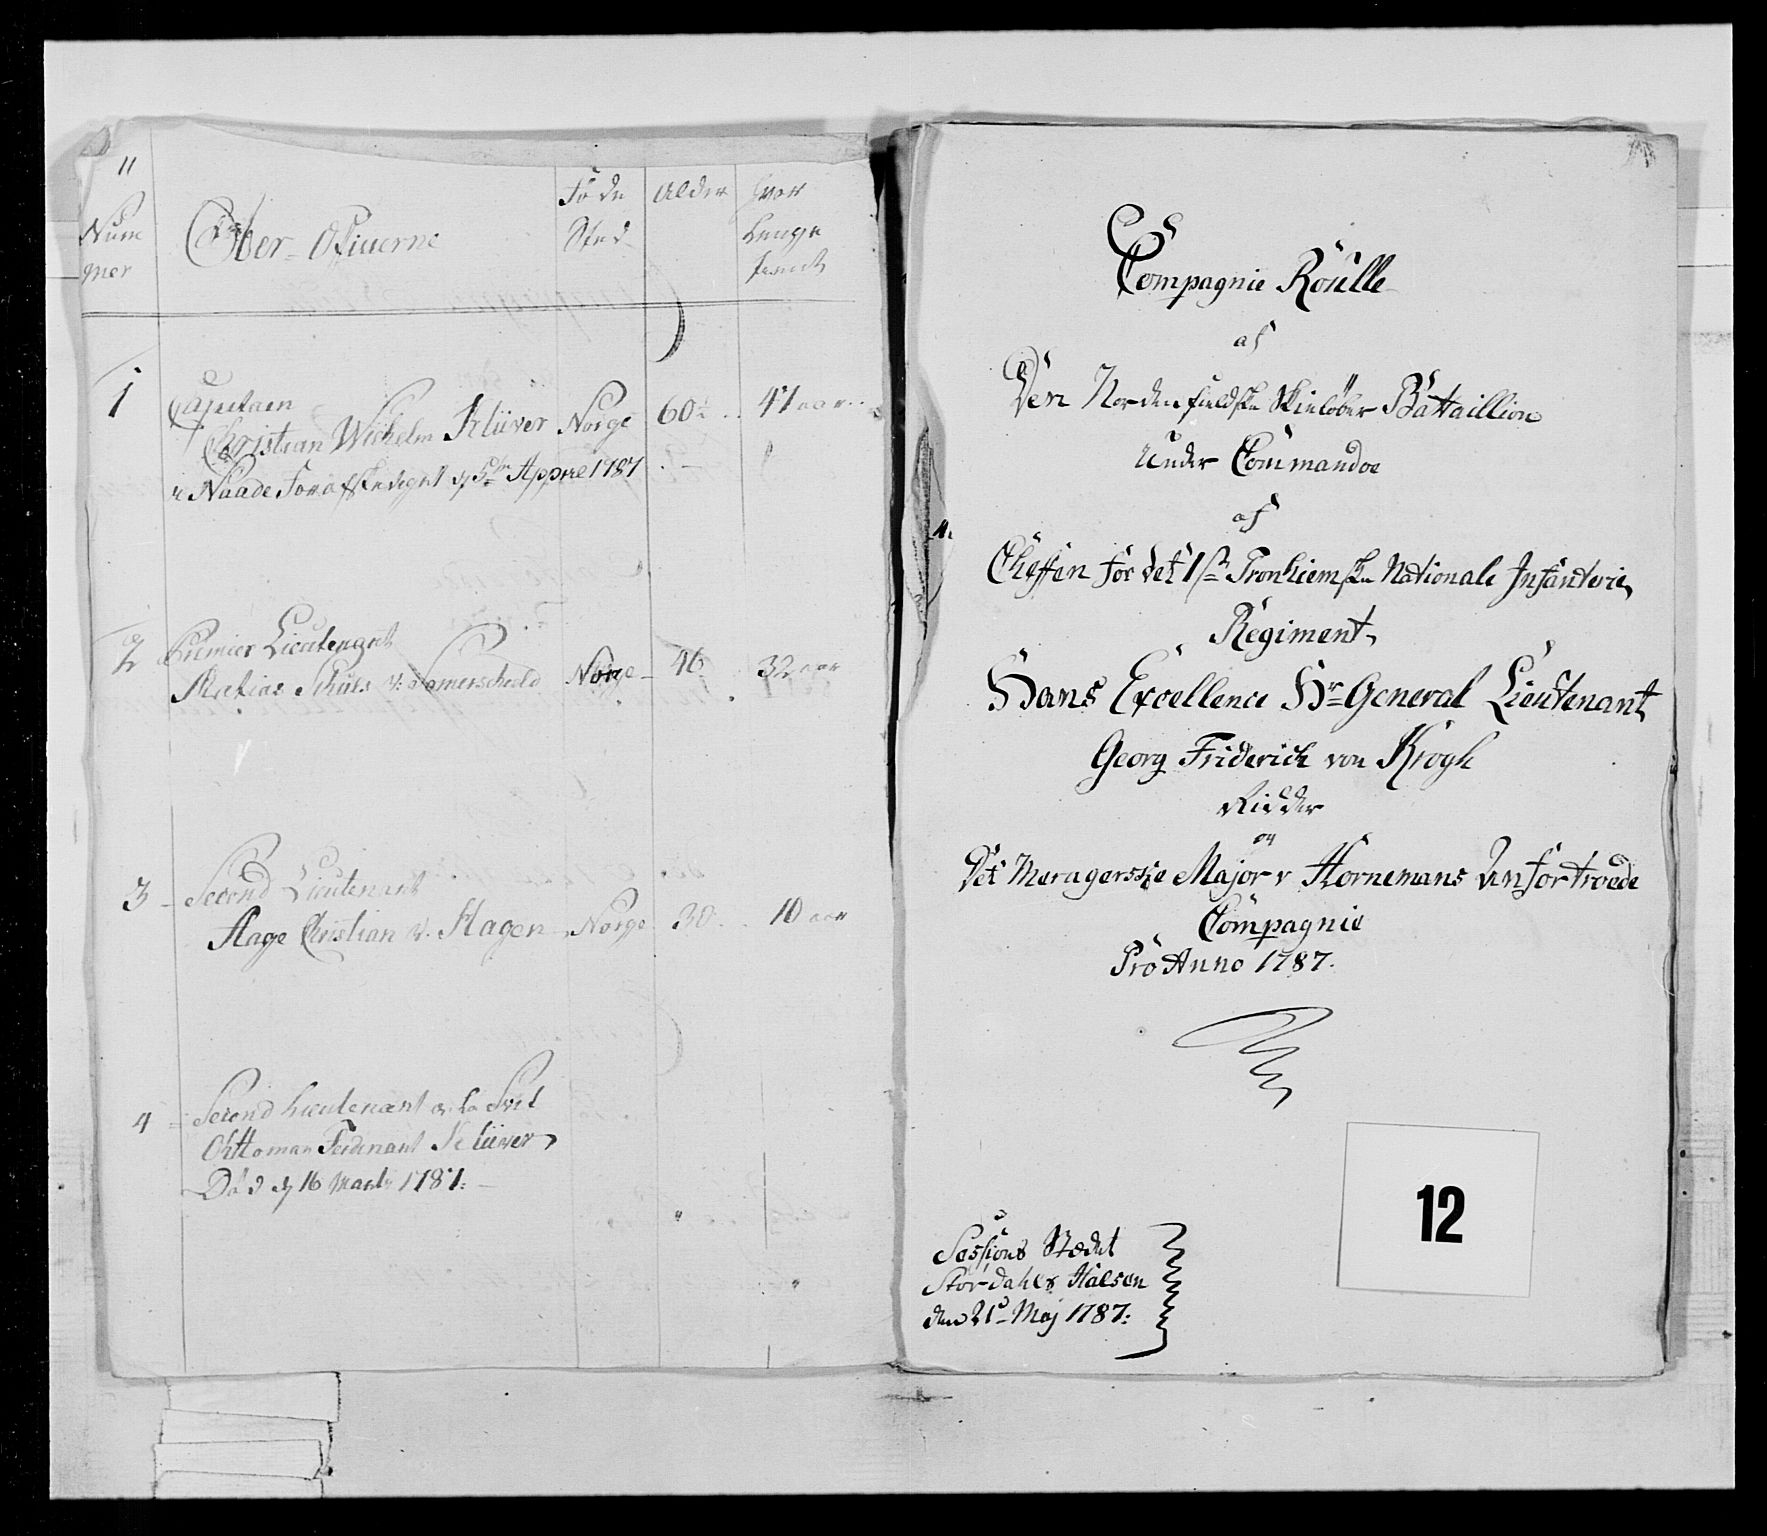 11
Num
mer
Ober-Officierne
Føde
Sted
Alder
hvor
Længe
tient
1
Capitaen
Christian Wilhelm Klüver Norge 60 41 aar
i Naade forafskediget d 5te Apprill 1787
2
Premier Lieutenant
Matias Schults v: Lamerscheeld Norge 46 32 aar
3
Second Lieutenant
Aage Christian v. Hagen Norge 30 10 aar
4
Second Lieutenant a la Svit
Otthoman Ferdinant Klüver
Død d 16 Marts 1787.
Compagnie Roulle
af
Den Nordenfieldske Skieløber Battaillion
Under Commandoe
af
Cheffen for det 1ste Tronhiemske Nationale Infanterie
Regiment
Hans Excellence Hr General Lieutenant
Georg Friderich von Krogh
Ridder
og
Det Meragerske Major v Hornemans Anfortroede
Compagnie
Pro Anno 1787.
12
Sessions Stædet
Stördahls Halsen
den 21de Maj 1787.